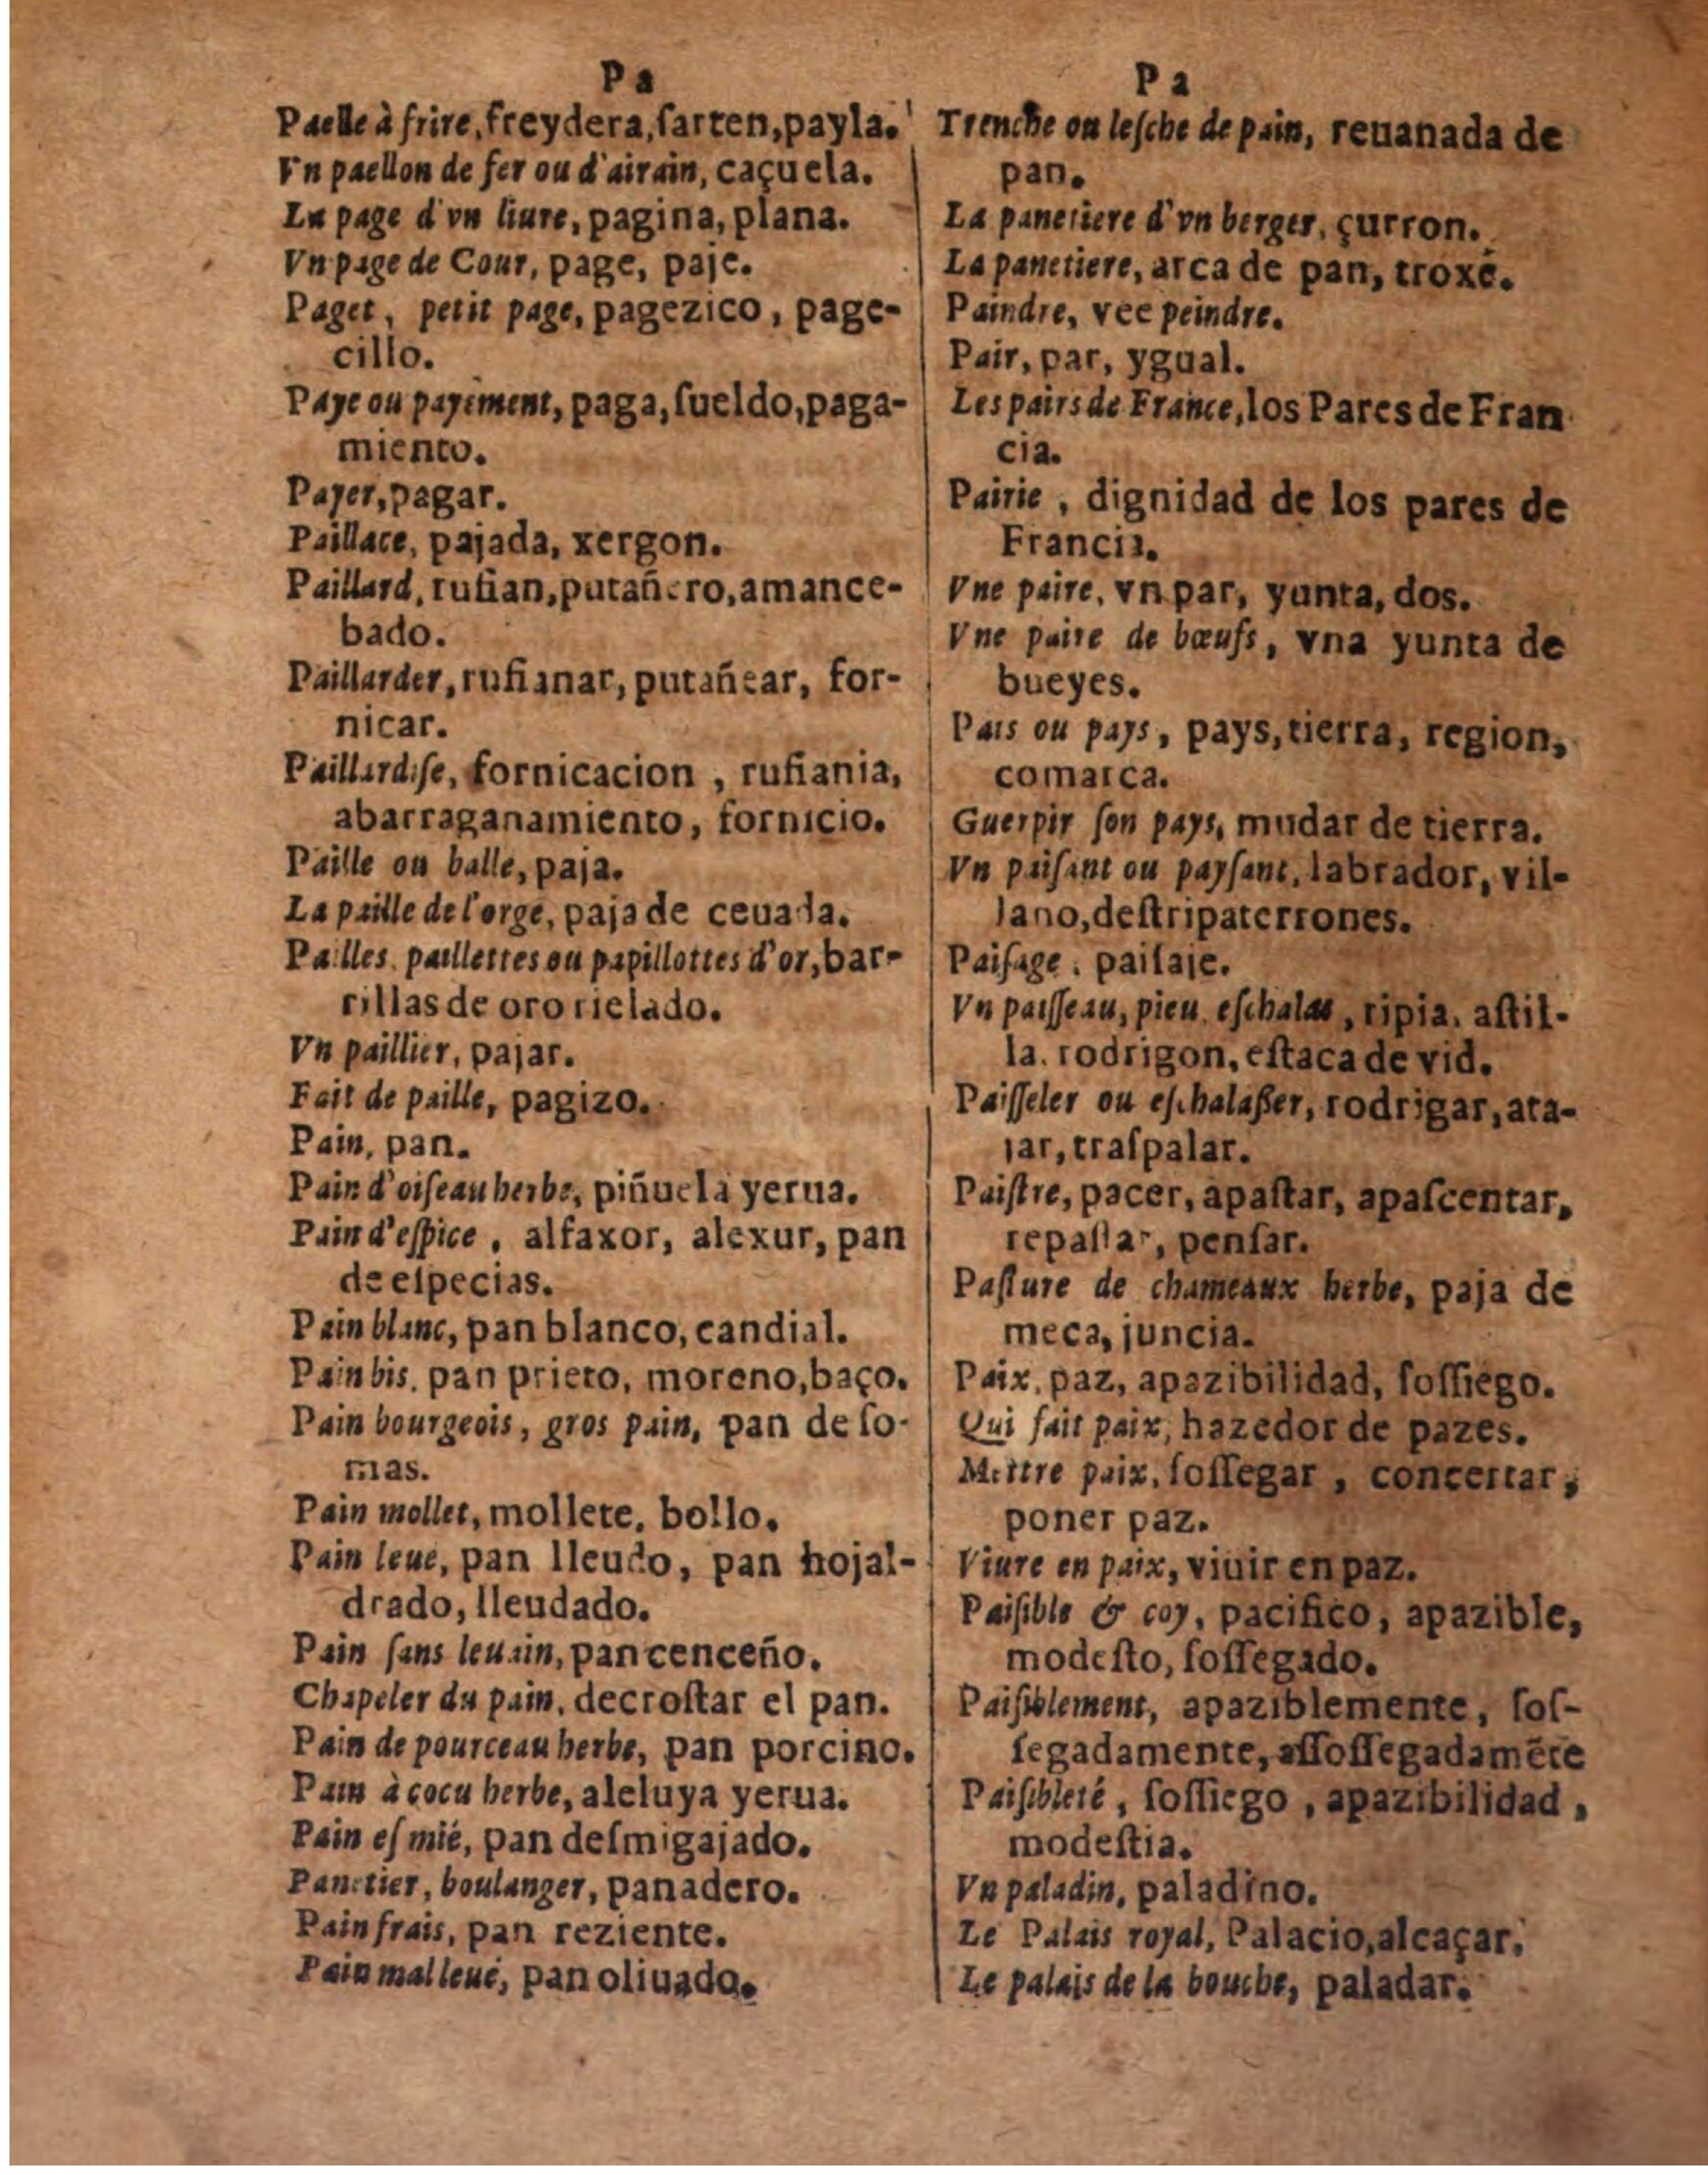 Pa
Paelle à frire, freydera, ſarten, payla.
Vn paellon de fer ou d'airain, caçuela.
La page d'vn liure, pagina, plana.
Vn page de Cour, page, paje.
Paget, petit page, pagezico, page-
cillo.
Paye ou payement, paga, ſueldo, paga-
miento.
Payer, pagar.
Paillace, pajada, xergon.
Paillard, rufian, putañero, amance-
bado.
Paillarder, rufianar, putañear, for-
nicar.
Paillardiſe, fornicacion, rufiania,
abarraganamiento, fornicio.
Paille ou balle, paja.
La paille de l'orge, paja de ceuada.
Pailles, paillettes ou papillottes d'or, bar-
rillas de oro rielado.
Vn paillier, pajar.
Fait de paille, pagizo.
Pain, pan.
Pain d'oiſeau herbe, piñuela yerua.
Pain d'eſpice, alfaxor, alexur, pan
de eſpecias.
Pain blanc, pan blanco, candial.
Pain bis, pan prieto, moreno, baço.
Pain bourgeois, gros pain, pan de ſo-
mas.
Pain mollet, mollete, bollo.
Pain leué, pan lleudo, pan hojal-
drado, lleudado.
Pain ſans leuain, pan cenceño.
Chapeler du pain, decroſtar el pan.
Pain de pourceau herbe, pan porcino.
Pain à cocu herbe, aleluya yerua.
Pain eſmié, pan deſmigajado.
Panetier, boulanger, panadero.
Pain frais, pan reziente.
Pain mal leué, pan oliuado.
Pa
Trenche ou leſche de pain, reuanada de
pan.
La panetiere d'vn berger, çurron.
La panetiere, arca de pan, troxe.
Paindre, vee peindre.
Pair, par, ygual.
Les pairs de France, los Pares de Fran
cia.
Pairie, dignidad de los pares de
Francia.
Vne paire, vn par, yunta, dos.
Vne paire de bœufs, vna yunta de
bueyes.
Pais ou pays, pays, tierra, region,
comarca.
Guerpir ſon pays, mudar de tierra.
Vn paiſant ou payſant, labrador, vil-
lano, deſtripaterrones.
Paiſage, paiſaje.
Vn paiſſeau, pieu, eſchalas, ripia, aſtil-
la, rodrigon, eſtaca de vid.
Paiſſeler ou eſchalaßer, rodrigar, ata-
jar, traſpalar.
Paiſtre, pacer, apaſtar, apaſcentar,
repaſtar, penſar.
Paſture de chameaux herbe, paja de
meca, juncia.
Paix, paz, apazibilidad, ſoſſiego.
Qui fait paix, hazedor de pazes.
Mettre paix, ſoſſegar, concertar,
poner paz.
Viure en paix, viuir en paz.
Paiſible & coy, pacifico, apazible,
modeſto, ſoſſegado.
Paiſiblement, apaziblemente, ſoſ-
ſegadamente, aſſoſſegadamẽte
Paiſibleté, ſoſſiego, apazibilidad,
modeſtia.
Vn paladin, paladino.
Le Palais royal, Palacio, alcaçar.
Le palais de la bouche, paladar.